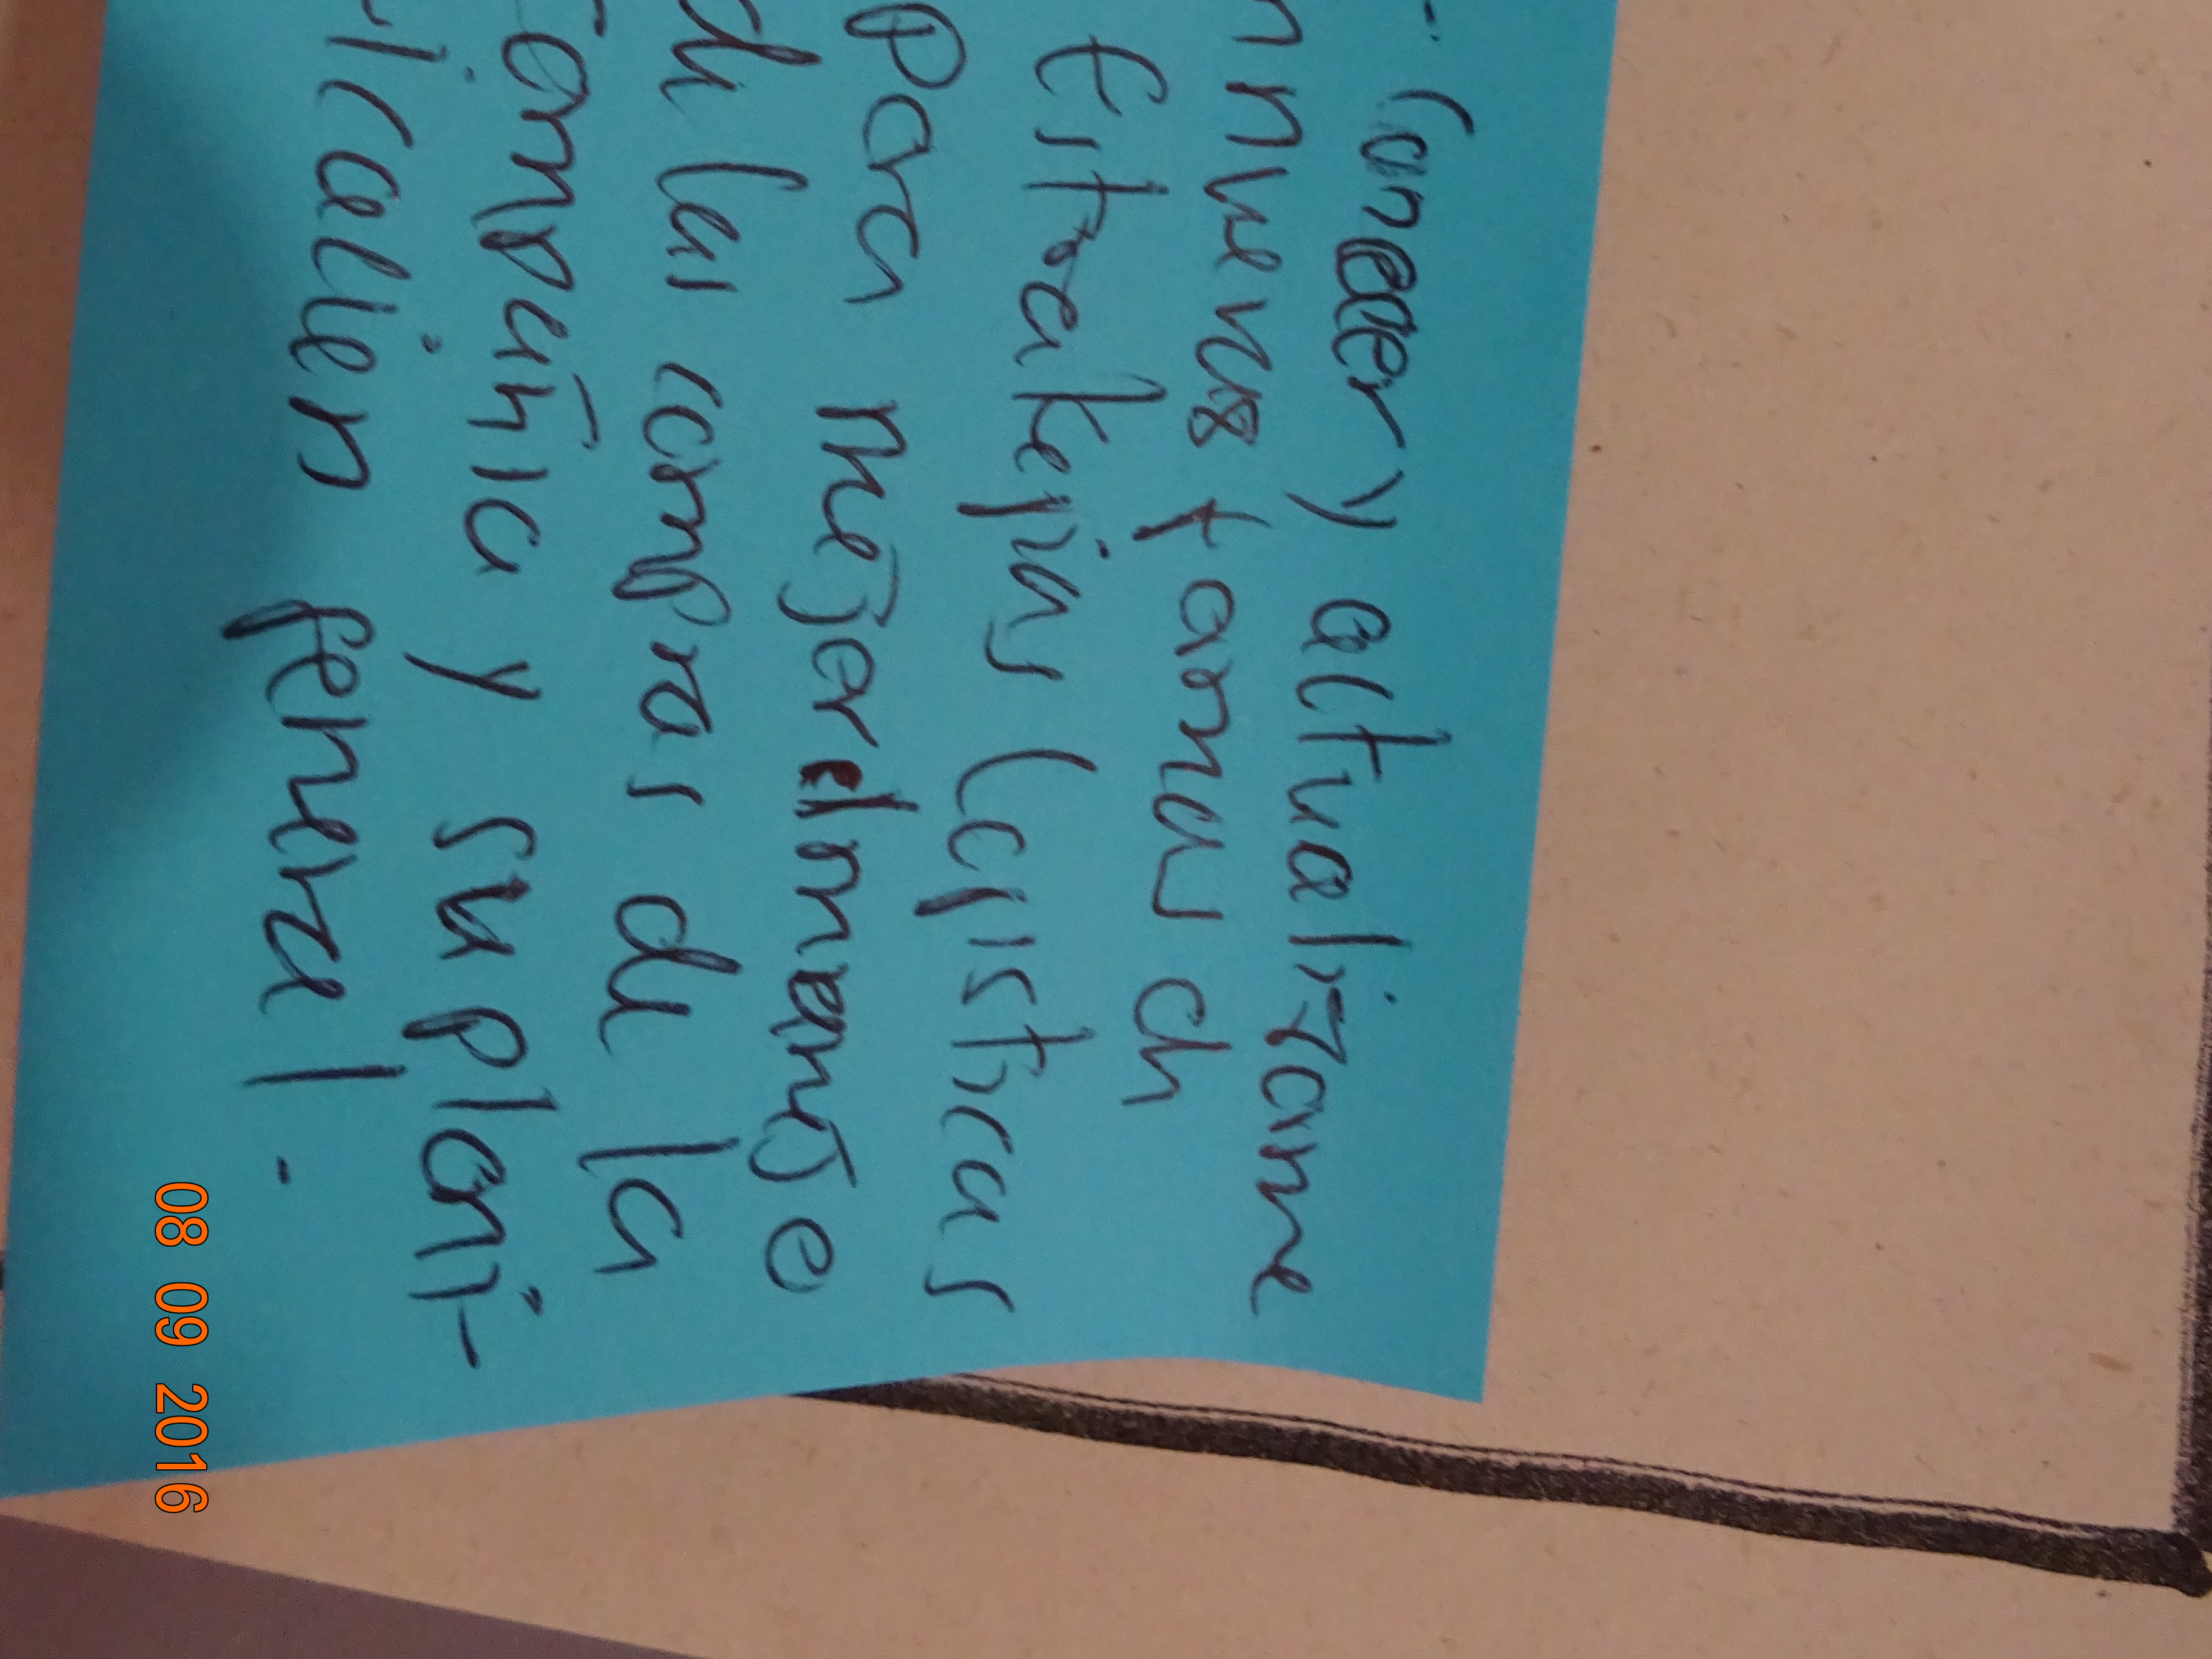 - Conocer y actualizarme
n nuevas formas de
Estrategias Logisticas
Para mejor el manejo
de las compras de la
Compañia y su plani-
ficacion general.
08 09 2016